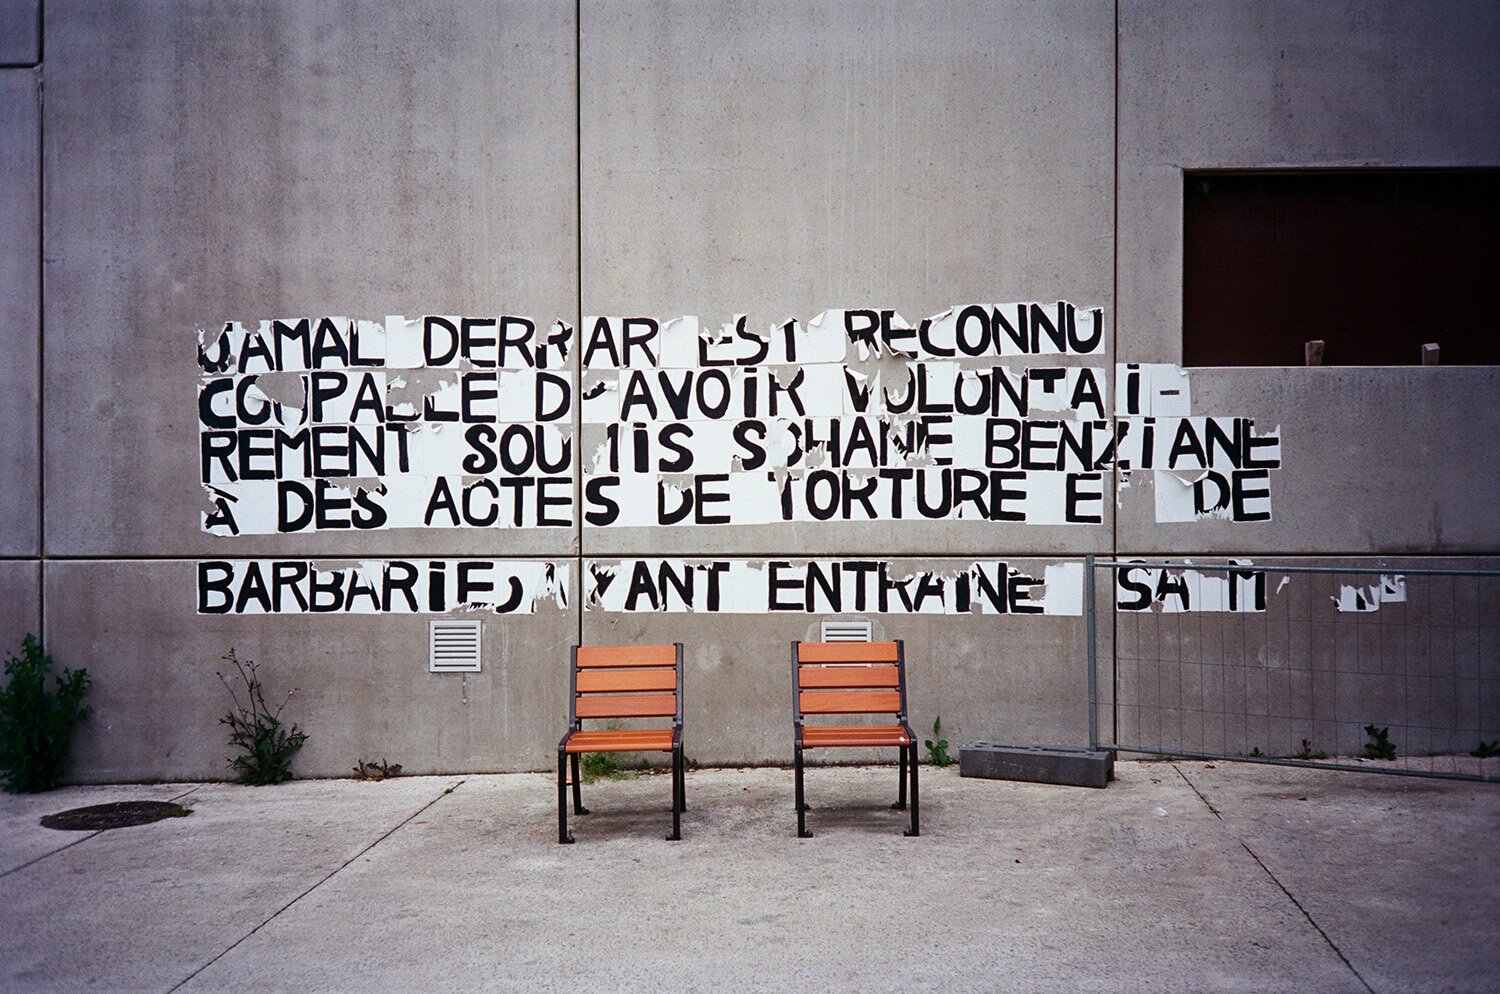 JAMAL DERRAR EST RECONNU
COUPABLE D'AVOIR VOLONTAI-
REMENT SOUMIS SOHANE BENZIANE
À DES ACTES DE TORTURE E DE
BARBARIES AYANT ENTRAINE SA M